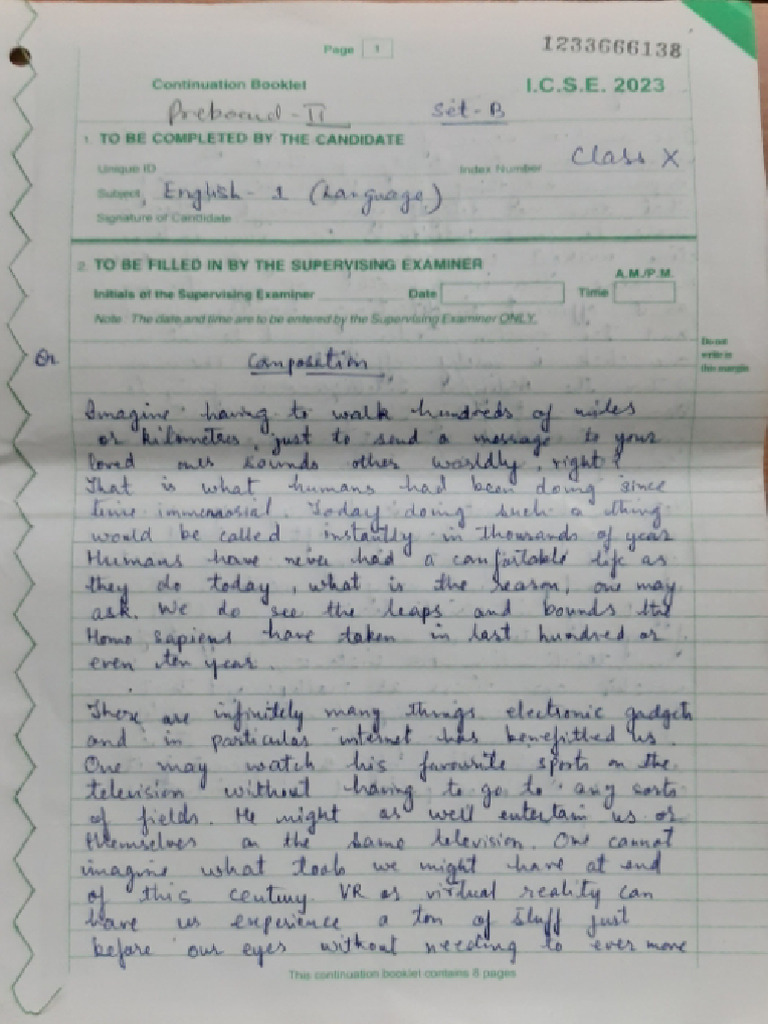 Page 1
1233666138
Continuation Booklet
I.C.S.E. 2023
Preboard - II
Set - B
1. TO BE COMPLETED BY THE CANDIDATE
Unique ID
Index Number
Class X
Subject English - 1 (Language)
Signature of Candidate
2. TO BE FILLED IN BY THE SUPERVISING EXAMINER
A.M./P.M.
Initials of the Supervising Examiner Date Time
Note : The date and time are to be entered by the Supervising Examiner ONLY.
Do not
write in
this margin
Composition
Imagine having to walk hundreds of miles
or kilometres, just to send a message to your
loved ones sounds other worldly, right?
That is what humans had been doing since
time immemorial. Today doing such a thing
would be called instantly in thousands of year
Humans have never had a comfortable life as
they do today, what is the reason, one may
ask. We do see the leaps and bounds the
Homo sapiens have taken in last hundred or
even ten year.
There are infinitely many things electronic gadgets
and in particular internet has benefitted us.
One may watch his favourite sports on the
television without having to go to any sorts
of fields. He might as well entertain us or
themselves on the same television. One cannot
imagine what tools we might have at end
of this century VR or virtual reality can
have us experience a ton of stuff just
before our eyes without needing to ever move
This continuation booklet contains 8 pages